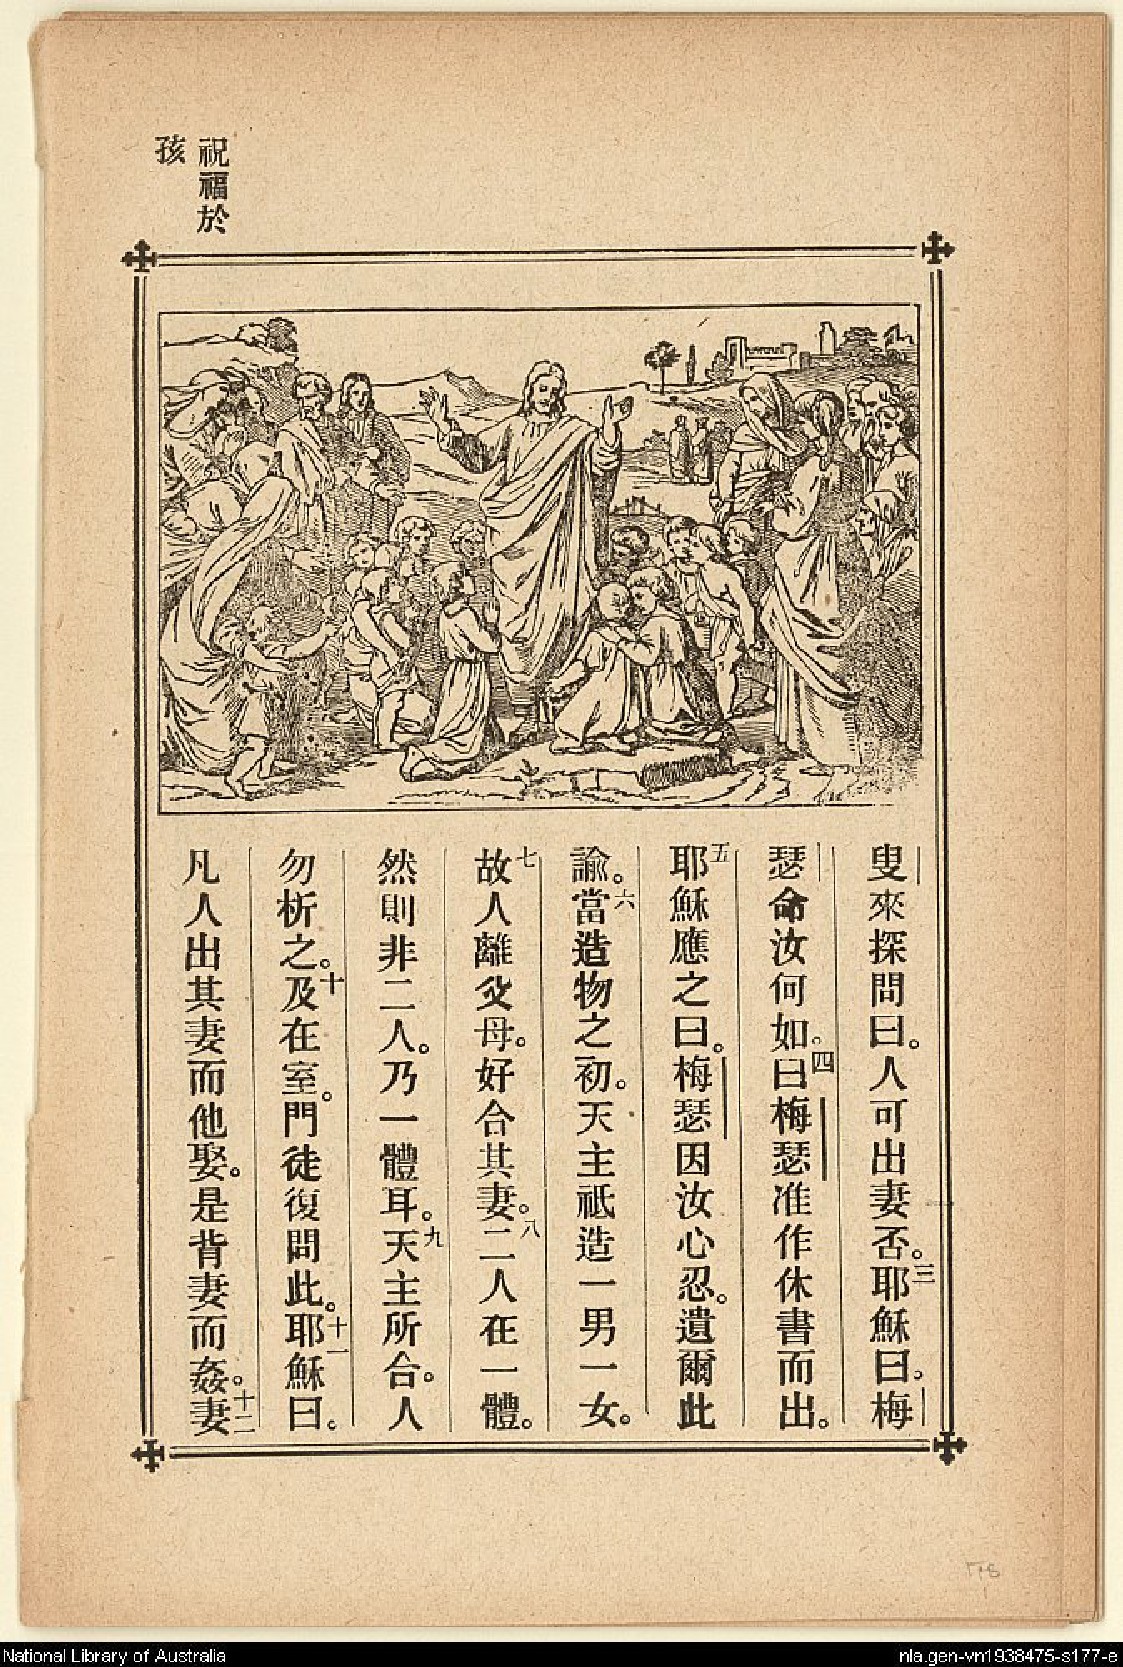 祝福於
孩
叟來探問曰。人可出妻否。三耶穌曰。梅
瑟命汝何如。四曰梅瑟准作休書而出。
五耶穌應之曰。梅瑟因汝心忍。遺爾此
諭。六當造物之初。天主祗造一男一女。
七故人離父母。好合其妻。八二人在一體。
然則非二人。乃一體耳。九天主所合。人
勿析之。十及在室。門徒復問此。十一耶穌曰。
凡人出其妻而他娶。是背妻而姦。十二妻
National Library of Australia
nla.gen-vn1938475-s177-e